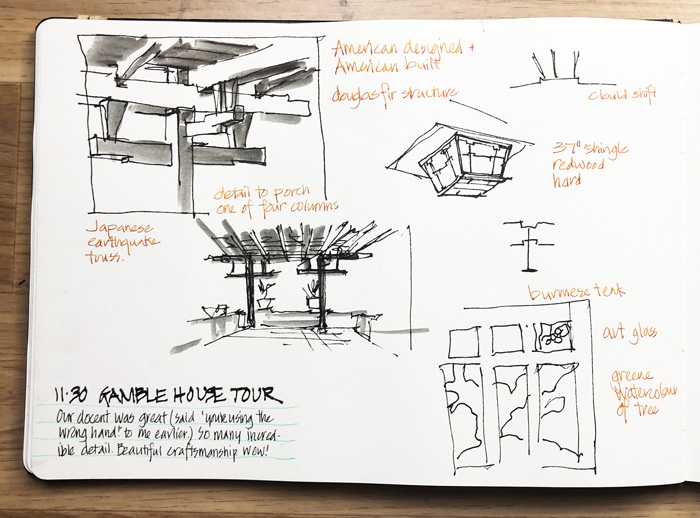 American designed +
American built
douglas fir structure
could shift
37" shingle
redwood
hard
detail to porch
one of four columns
Japanese
earthquake
truss.
burmese teak
art glass
greene
watercolour
of tree
11·30 GAMBLE HOUSE TOUR
Our docent was great (said 'you're using the
wrong hand!' to me earlier.) so many incred-
ible detail. Beautiful craftsmanship wow!